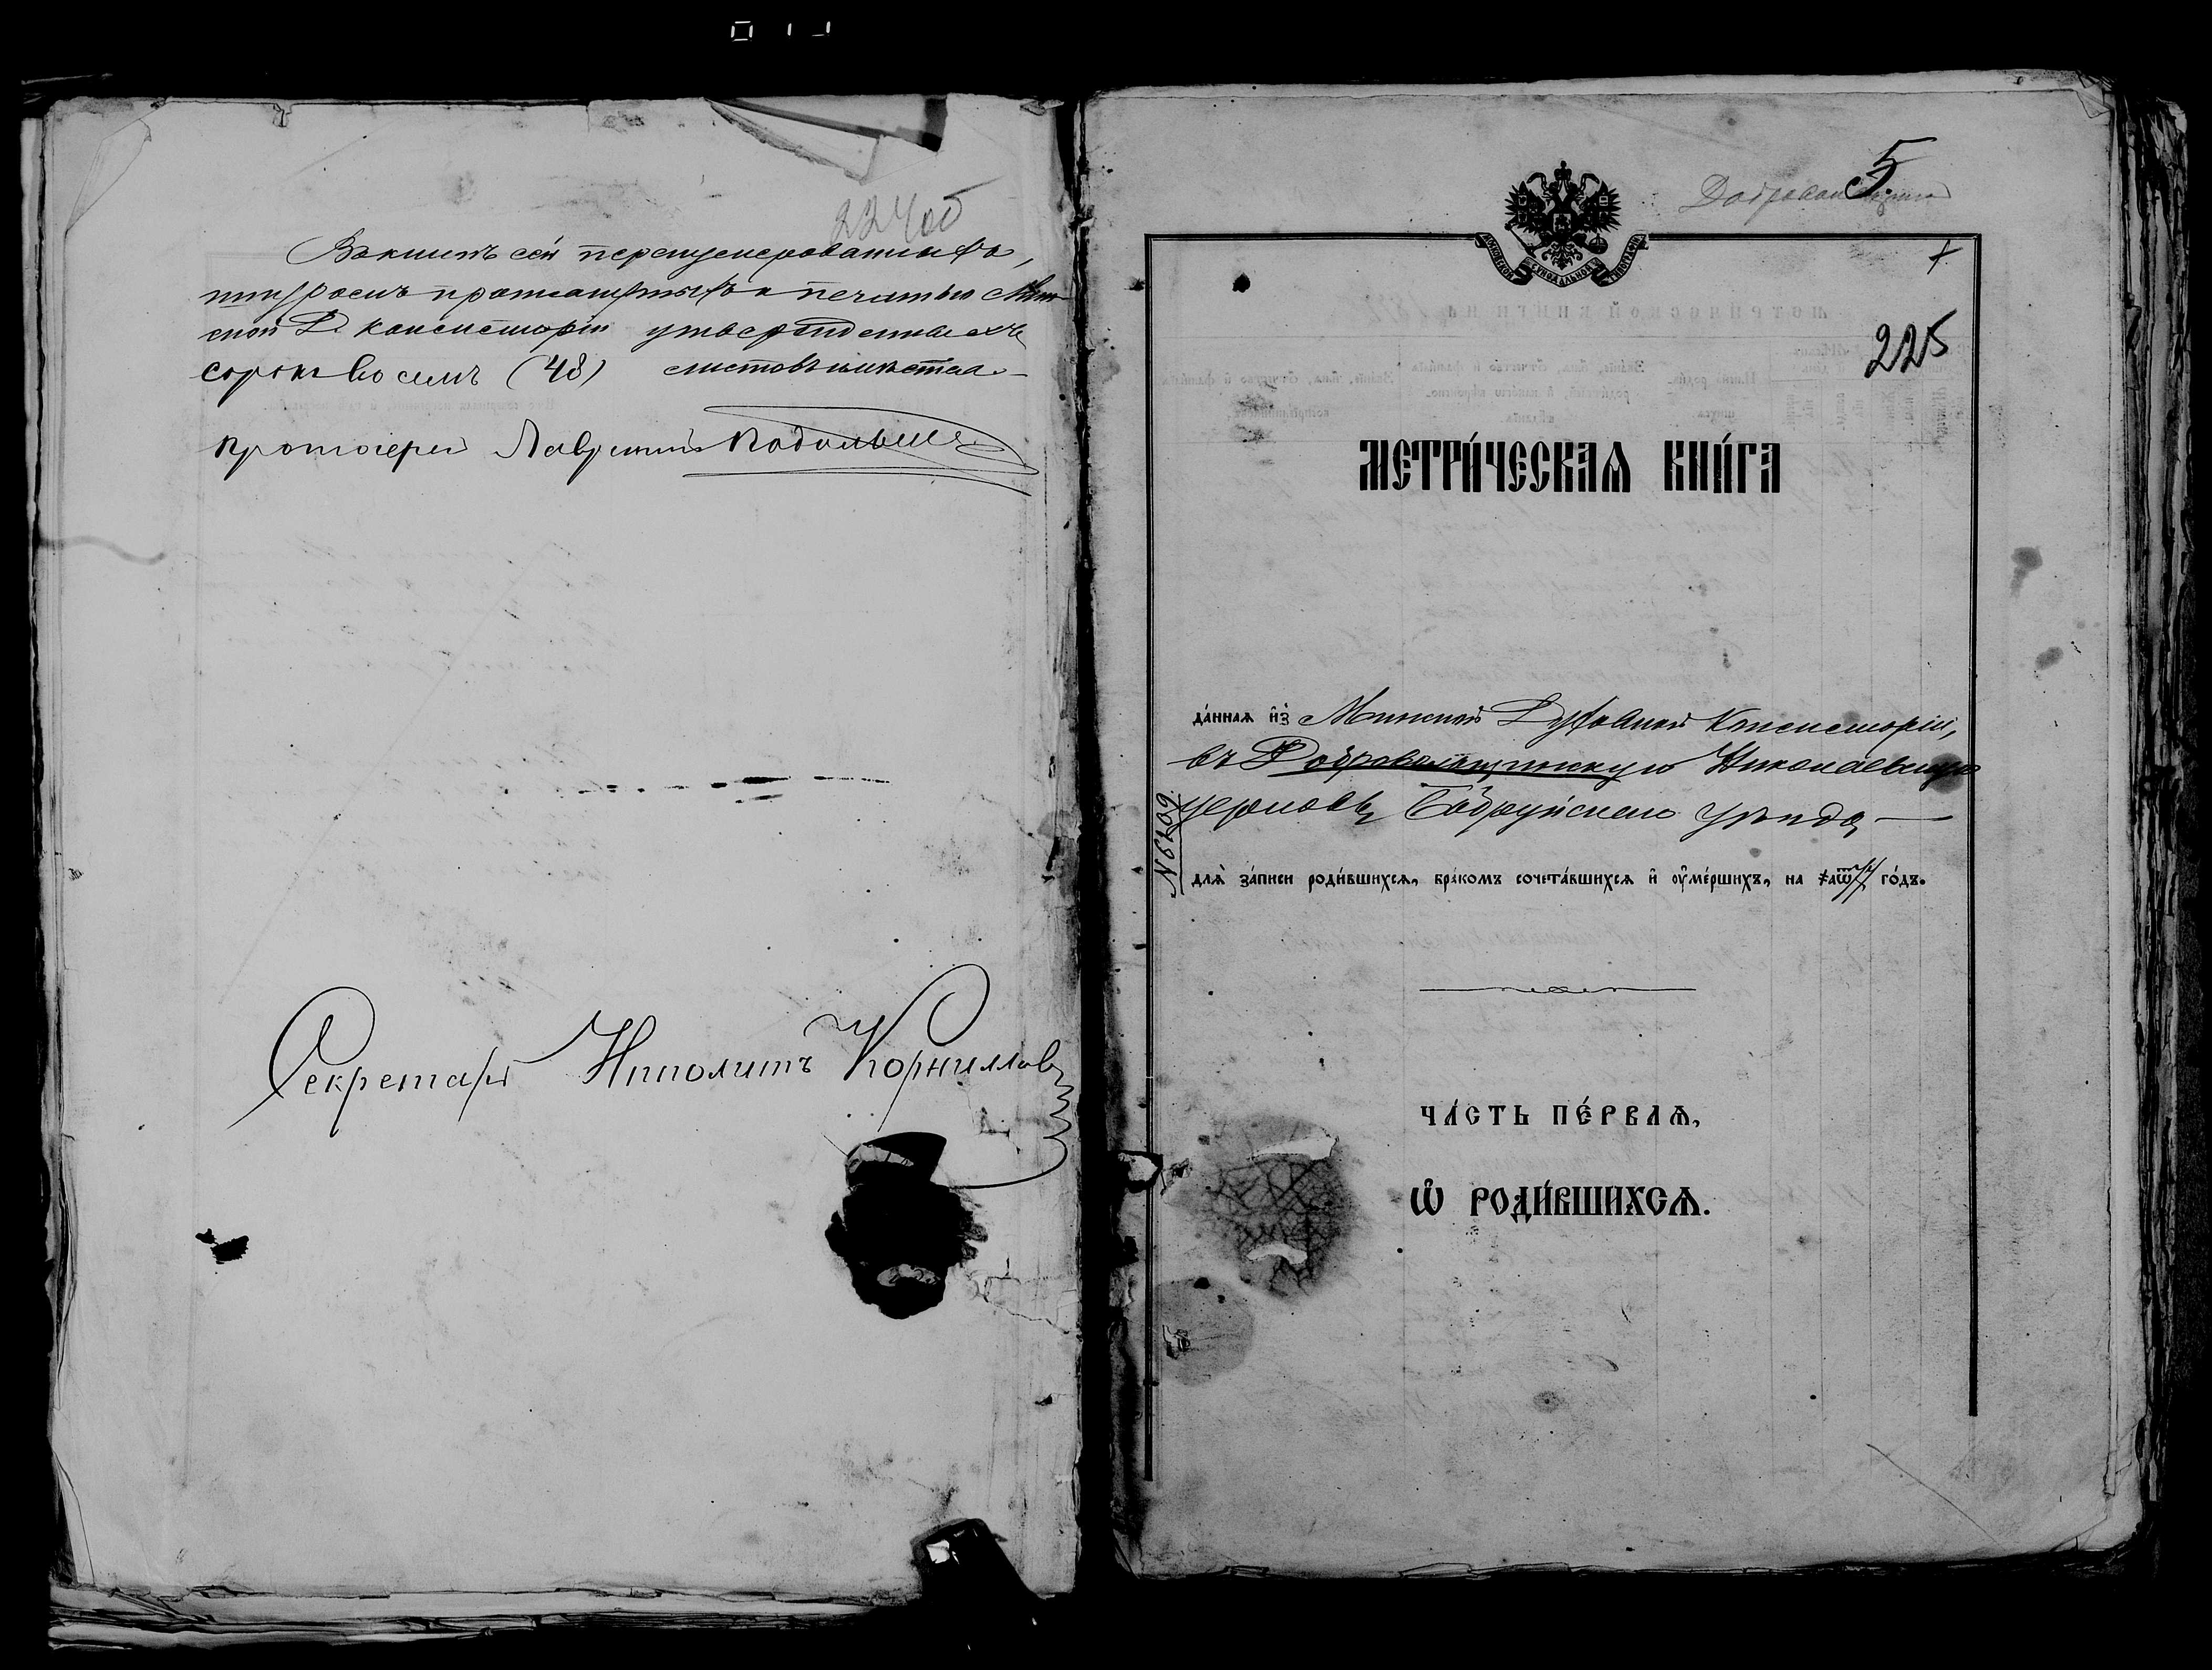 224об
Въ книгѣ сей перенумерованныхъ,
шнуромъ прошнурованныхъ и печатью Мин-
ской Д. Консисторіи утвержденныхъ
сорокъ восемь (48) листовъ имѣется.
Протоіерей Лаврентій
Секретарь Ипполитъ Корниловъ
5
МОСКОВСКОЙ СѴНОДАЛЬНОЙ ТИПОГРАФІИ
225
МЕТРИ́ЧЕСКАѦ КНИ́ГА
да́ннаѧ и҆з̾ Минской Духовной Консисторіи,
въ Доброволщинскую Николаевскую
церковь Бобруйскаго уѣзда
№ 6709
длѧ̀ за́писи роди́вшихсѧ, бра́комъ сочета́вшихсѧ и҆ оу҆ме́ршихъ, на го́дъ.
ЧА́СТЬ ПЕ́РВАѦ,
Ѡ҆ РОДИ́ВШИХСѦ.